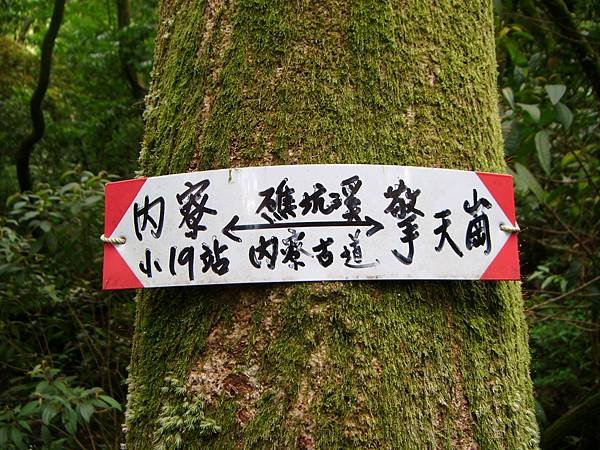 內寮
小19站
礁坑溪
內寮古道
擎天崗